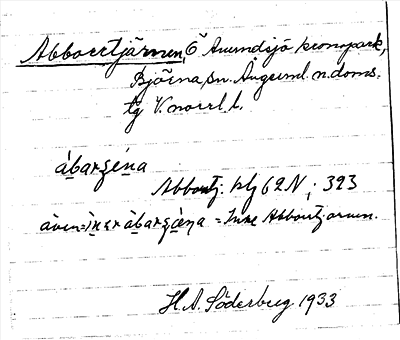 Abborrtjärnen, Ö Anundsjö kronopark,
Björna sn. Ångerml. n. doms.
tg V.norrl. l.
ábarʂéna
Abborrtj. klg 62N; 323
även = ìnəràbarʂèṇa = Inre Abborrtjärnen.
H.A. Söderberg 1933